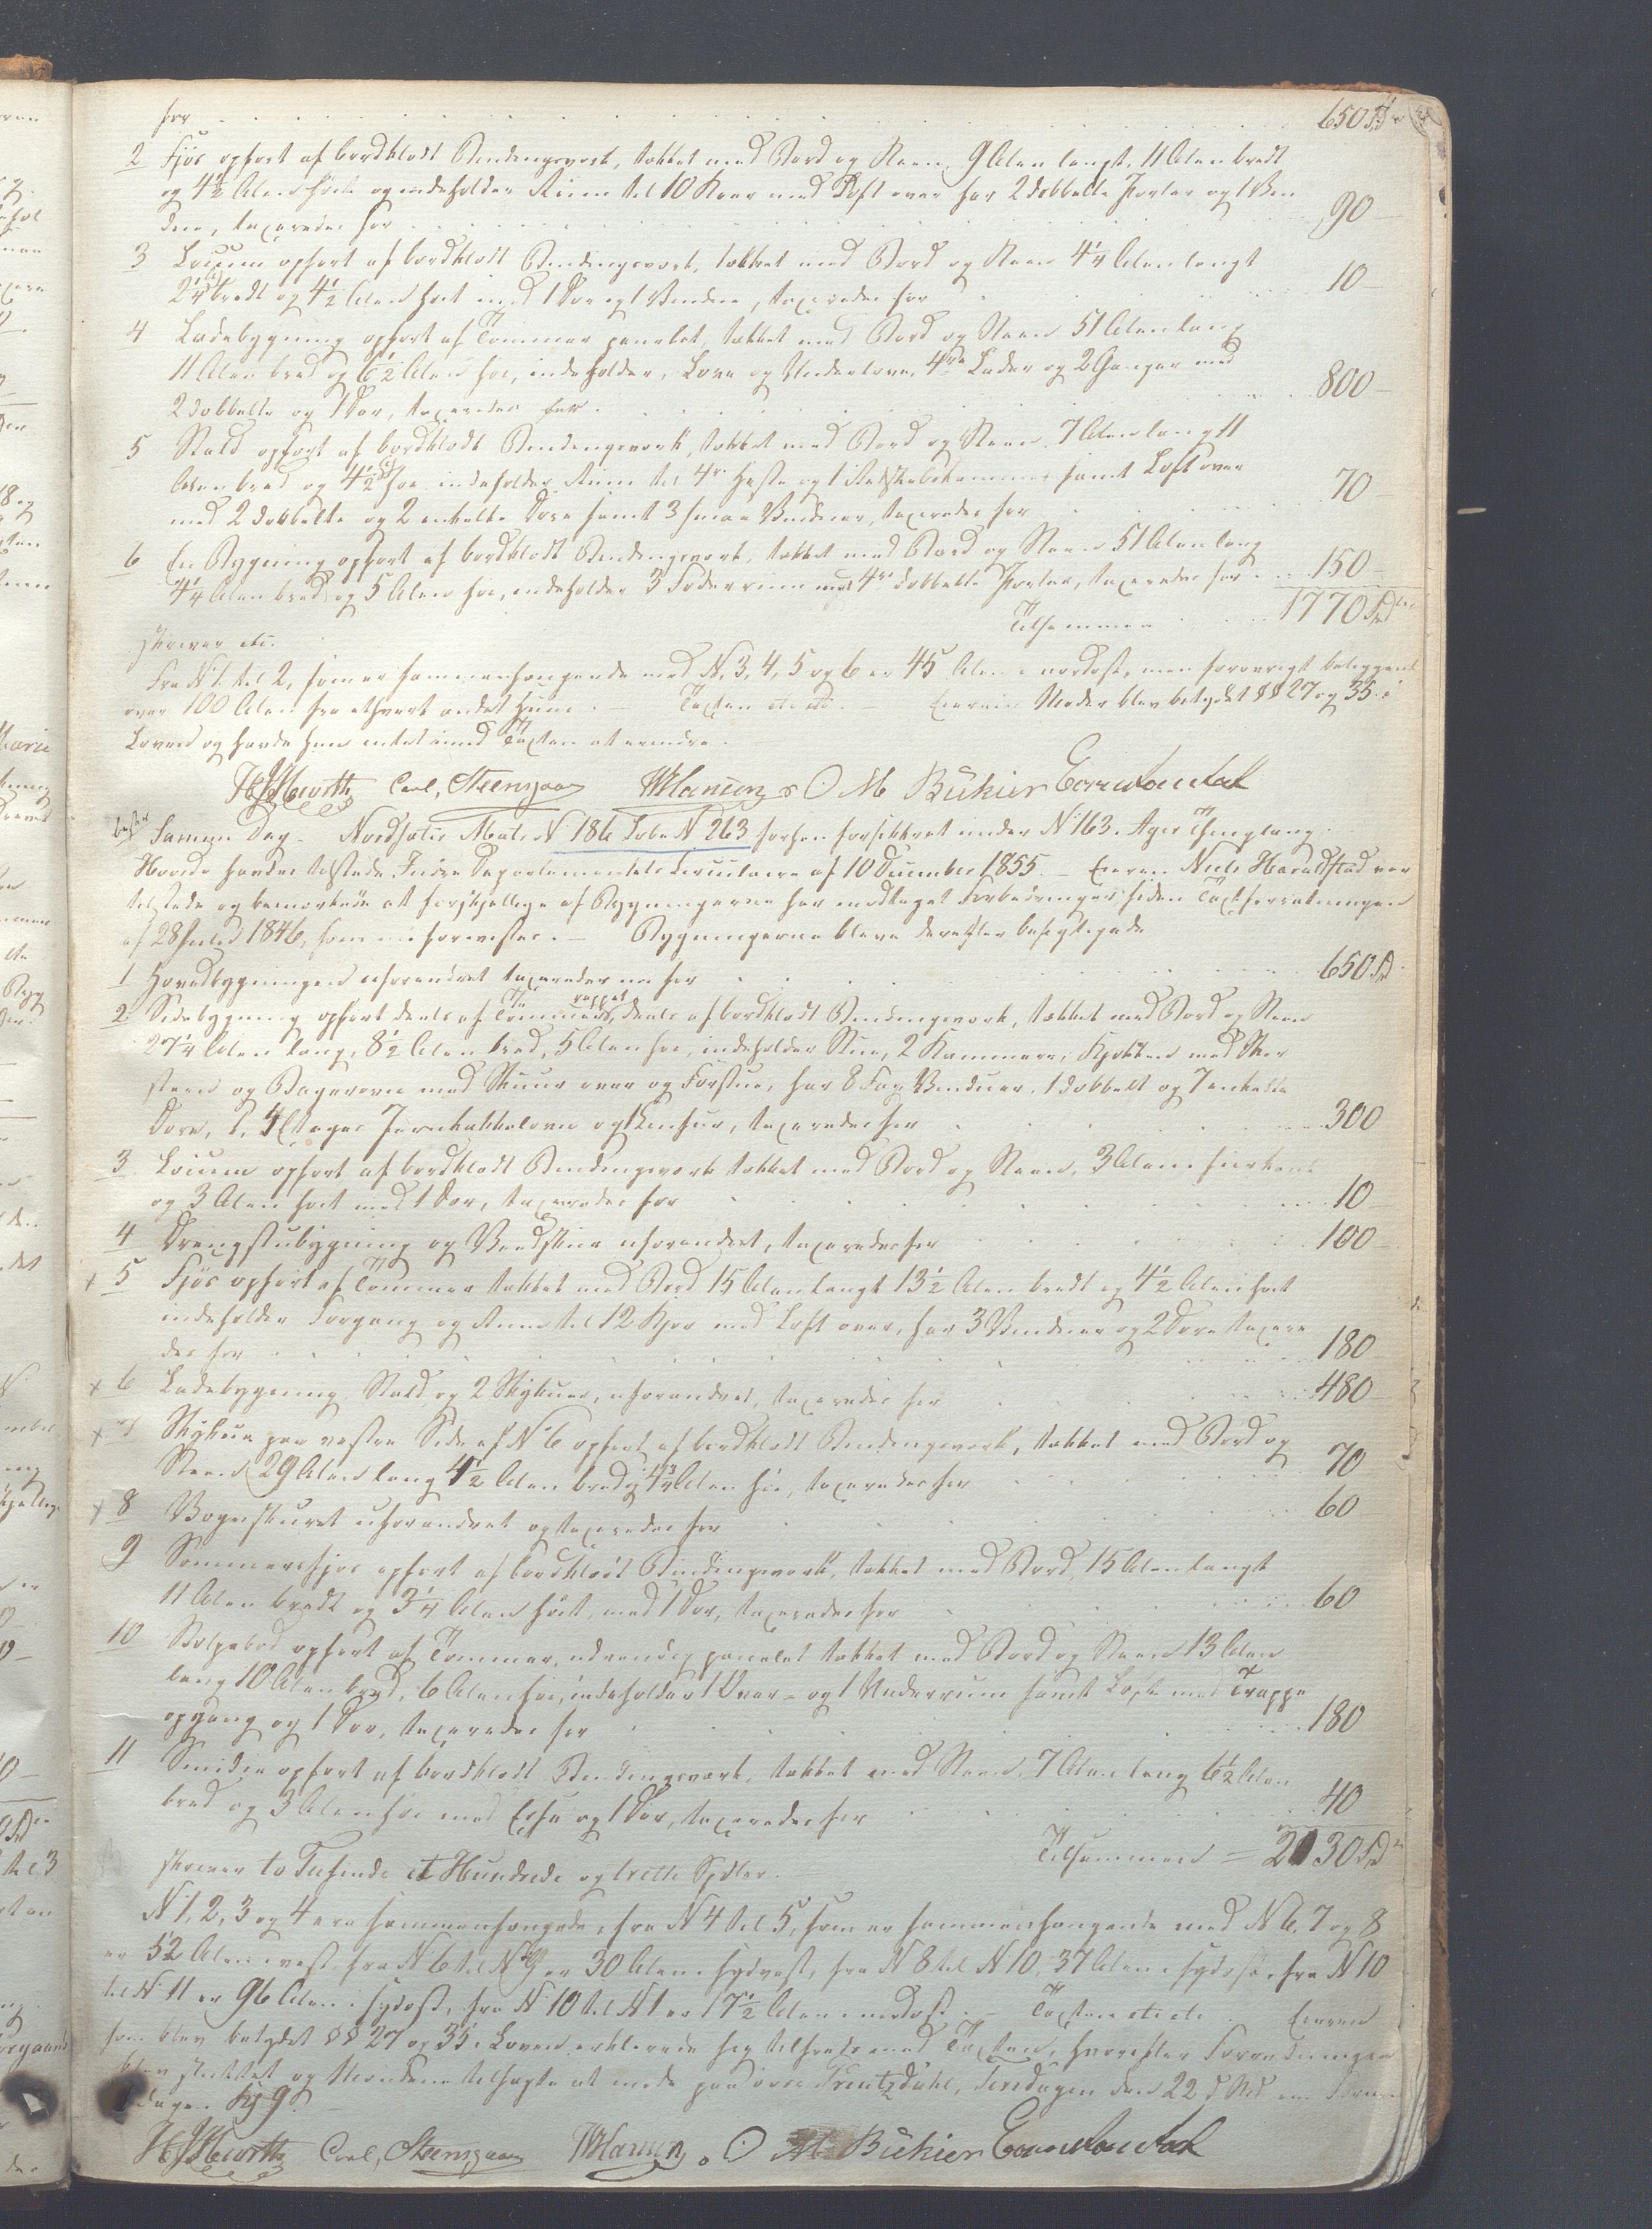 for 650 Spd
2 Fjös opført af bordklædt Bindingsværk, tækket med Bord og Steen, 9 Alen langt, 11 Alen bredt
og 4½ Alen höit og indeholder Rum til 10 Köer med Loft over har 2 dobbelte Porter og 1 Vin
due, taxeredes for 90
3 Locum opført af bordklædt Bindingsværk, tækket med Bord og Steen 4¼ Alen langt
2¼ bredt og 4½ Alen høit med 1 Dør og 1 Vindue, taxeredes for 10
4 Ladebygning opført af Tømmer panelet, tækket med Bord og Steen 51 Alen lang
11 Alen bred og 6½ Alen høi, indeholder, Love og Underlove, 4re Lader og 2 Gange med
2 dobbelte og 1 Dør, taxeredes for 800
5 Stald opført af bordklædt Bindingsværk, tækket med Bord og Steen 7 Alen lang 11
Alen bred og 4½ høi indeholder Rum til 4re Heste og 1 Redskabskammer samt Loft over
med 2 dobbelte og 2 enkelte Døre samt 3 smaa Vinduer, taxeredes for 70
6 En Bygning opført af bordklædt Bindingsværk, tækket med Bord og Steen 51 Alen lang
4¼ Alen bred og 5 Alen høi, indeholder 3 Foderrum med 4re dobbelte Porter, taxeredes for 150
Tilsammen 1770 Spd
skriver etc.
Fra N 1 til 2, som er sammenhængende med N, 3, 4, 5 og 6 er 45 Alen i nordost, men forøvrigt beliggende
over 100 Alen fra ethvert andet Huus. — Taxten etc etc. — Eierens Moder blev betydet §§ 27 og 35 i
Loven og havde hun intet imod Taxten at erindre.
Carl, Steensgaard Hansen O M Bükier
Samme Dag. Nordsæter Matr. N 186 Løbe N 263 forhen forsikkret under N 163. Ager Thinglaug.
Hvorda havdes tilstede Indre Departementets Circulaire af 10 December 1855. — Eieren Niels Haraldstad var
tilstede og bemærkede at forskjellige af Bygningerne har modtaget Forbedringer siden Taxtforretningen
af 28 Juli 1846, som nu forevistes. — Bygningerne bleve derefter besigtigede
1 Hovedbygningen uforandret taxeredes nu for 650 Spd
2 Sidebygning opført deels af Tømmer rappet, deels af bordklædt Bindingsværk, tækket med Bord og Steen
27¼ Alen lang, 8½ Alen bred, 5 Alen høi, indeholder Stue, 2 Kammere, Kjøkken med Skor
steen og Bagerovn med Skuur over og Forstue, har 8 Fag Vinduer, 1 dobbelt og 7 enkelte
Døre, 1, 4 Etages Jernkakkelovn og 1 Komfur, taxeredes for 300
3 Locum opført af bordklædt Bindingsværk tækket med Bord og Steen, 3 Alen i Fiirkant
og 3 Alen høit med 1 Dør, taxeredes for 10
4 Drengstubygning og Vedskuur uforandret, taxeredes for 100
x 5 Fjös opført af Tømmer tækket med Bord 15 Alen langt 13½ Alen bredt og 4½ Alen høit
indeholder Forgang og Rum til 12 Kjør med Loft over, har 3 Vinduer og 2 Døre taxere
des for 180
x 6 Ladebygning, Stald, og 2 Skykuer, uforandret, taxeredes for 480
x 7 Skykue paa vestre Side af N 6 opført af bordklædt Bindingsværk, tækket med Bord og
Steen 29 Alen lang 4½ Alen bred og 4¾ Alen høi, taxeredes for 70
x 8 Vognskuret uforandret og taxeredes for 60
9 Sommerfjös opført af bordklædt Bindingsværk, tækket med Bord, 15 Alen langt
11 Alen bredt og 3¼ Alen höit, med 1 Dør, taxeredes for 60
10 Stolpebod opført af Tømmer, udvendig panelet tækket med Bord og Steen 13 Alen
lang 10 Alen bred, 6 Alen høi, indeholder 1 Over- og 1 Underrum samt Loft med Trappe
opgang og 1 Dør, taxeredes for 180
11 Smidie opført af bordklædt Bindingsværk, tækket med Steen, 7 Alen lang 6½ Alen
bred og 3 Alen høi med Esse og 1 Dør, taxeredes for 40
Tilsammen = 2130 Spd
skriver to Tusinde et Hundrede og trette Spdler.
N 1, 2, 3 og 4 ere sammenhængende, fra N 4 til 5, som er sammenhængende med N 6, 7 og 8
er 52 Alen i vest fra N 6 til N 9 er 30 Alen i sydvest, fra N 8 til N 10, 37 Alen i sydost, fra N 10
til N 11 er 96 Alen i sydost, fra N 10 til N 1 er 17½ Alen i nordost. — Taxten etc etc. Eieren
som blev betydet §§ 27 og 35 i Loven erklærede sig tilfreds med Taxten, hvorefter Forretningen
blev sluttet og Mændene tilsagte at møde paa övre Freutzdahl, Tirsdagen den 22 d. Md om Formid
dagen Kl 9.
Carl, Steensgaard Hansen O M Bükier